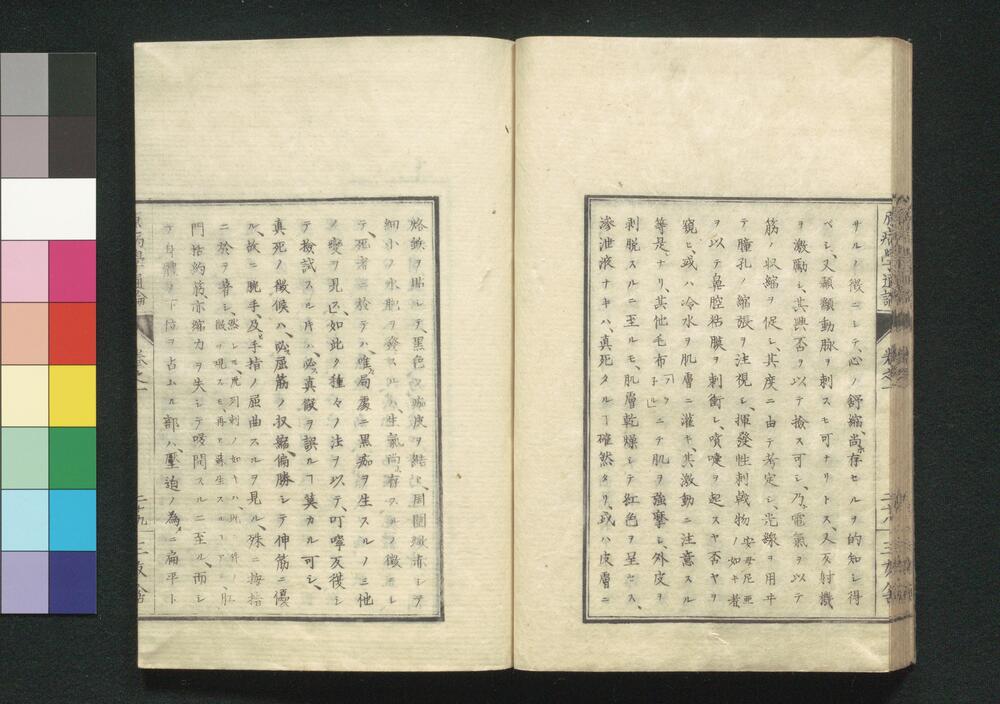 サルノ徴ニシテ、心ノ舒縮、尚存セルヲ的知シ得
ベシ、又顳顬動脉ヲ刺スモ可ナリトス、又反射機
ヲ激動シ、其典否ヲ以テ撿ス可シ、乃電氣ヲ以テ
筋ノ収縮ヲ促シ、其度ニ由テ考定シ、光線ヲ用ヰ
テ瞳孔ノ縮張ヲ注視シ、揮發性刺戟物安母尼亜ノ如キ者
ヲ以テ鼻腔粘膜ヲ刺衝シ、噴嚏ヲ起スヤ否ヤヲ
窺ヒ、或ハ冷水ヲ肌膚ニ灌キ、其激動ニ注意スル
等是ナリ、其他毛布ニテ肌ヲ強摩シ、外皮ヲ
剥脱スルニ至ルモ、肌膚乾燥シテ紅色ヲ呈セス、
滲泄液ナキハ、真死タルヿ確然タリ、或ハ皮膚ニ
烙鉄ヲ貼シテ、黒色ノ痂皮ヲ結ヒ、周圍焮赤シテ
細小ノ水胞ヲ發スルハ、生氣尚存スルノ徴ニシ
テ、死者ニ於テハ、唯局處ニ黒痂ヲ生スルノミ他
ノ變ヲ見ス、如此ク種々ノ法ヲ以テ、叮嚀反復シ
テ撿試スル片ハ、必真假ヲ誤ルヿ莫カル可シ、
真死ノ徴候ハ、必屈筋ノ収縮、偏勝シテ伸筋ニ優
ル、故ニ腕手及手指ノ屈曲スルヲ見ル、殊ニ拇指
ニ於テ著シ、
門括約筋亦縮力ヲ失シテ哆開スルニ至ル、而シ
テ身體ノ下位ヲ占ムル部ハ、壓迫ノ為ニ扁平ト
原病學通論
卷之一
二十八
三友舍